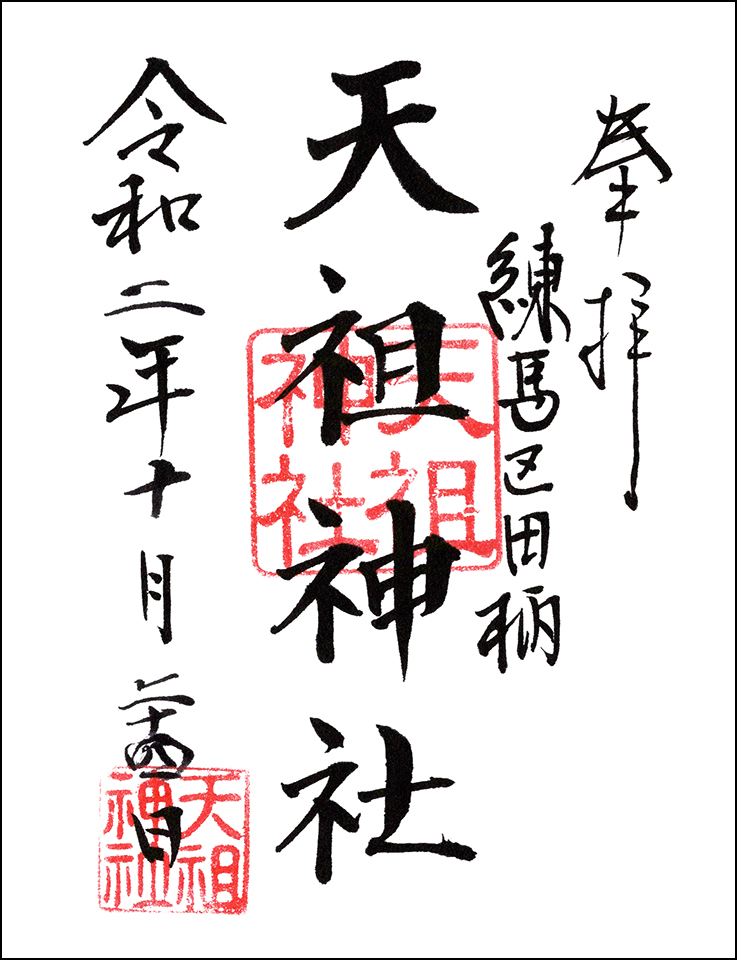 奉拝
練馬区田柄
天祖神社
天祖神社
令和二年十月二十四日
天祖神社